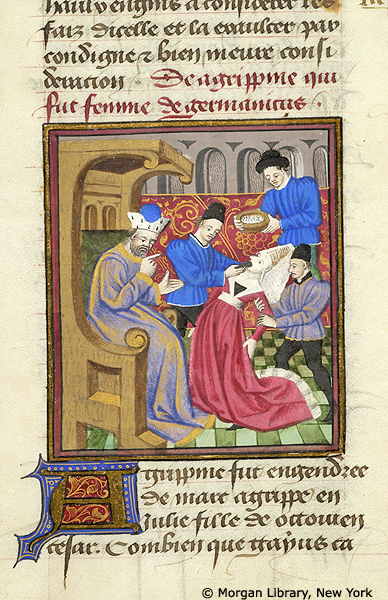 haulx engins a considerer les
faiz dicelle et la exaulcer par
condigne ⁊ bien meure consi
deration . De agrippine qui
fut femme de germanicus .
Agrippine fut engendree
de marc agrippe en
iulie fille de octouien
cesar. Combien que gayus ca
© Morgan Library, New York